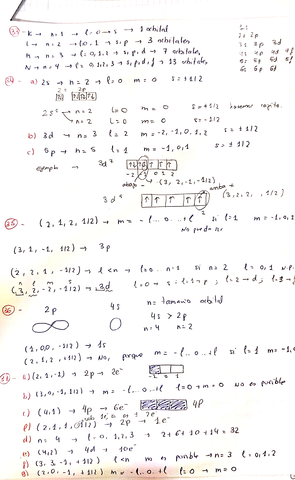 K → n=1 → l=0 → s → 1 orbital
L → n=2 → l=0,1 → s,p → 3 orbitales
M → n=3 → l=0,1,2 → s,p,d → 7 orbitales
N → n=4 → l=0,1,2,3 → s,p,d,f → 13 orbitales
1s
2s 2p
3s 3p 3d
4s 4p 4d 4f
5s 5p 5d 5f
6s 6p 6d
a) 2s → n=2 → l=0 m=0 s=±1/2
2s² → n=2 l=0 m=0 s=+1/2
→ n=2 l=0 m=0 s=-1/2
b) 3d → n=3 l=2 m=-2,-1,0,1,2 s=±1/2
c) 5p → n=5 l=1 m=-1,0,1 s=±1/2
ejemplo → 3d⁷
-2 -1 0 1 2
abajo → (3, 2, -1, -1/2)
3d⁵ ↑ ↑ ↑ ↑ ↑
(3,2,2, 1/2)
(2,1,2,1/2) → m=-l...0...+l si l=1 m=-1,0,1
No puede ser
(3,1,-1,1/2) → 3p
(2,2,1,-1/2) → l<n → l=0...n-1 si n=2 l=0,1
n l m s
(3,2,-2,-1/2) → 3d l=0→s; l=1→p; l=2→d;
2p 4s n= tamaño orbital
4s > 2p
n=4 n=2
(1,0,0,-1/2) → 1s
(2,1,2,+1/2) → No, porque m=-l...0...+l si l=1 m=-1,
a) (2,1,-1) → 2p → 2e⁻ -1 0 1
b) (3,0,-1,1/2) → m=-l...0...+l l=0→m=0 No es posible
c) (4,1) → 4p → 6e⁻ 4p
(2,1,1,1/2) → 2p → 1e⁻
d) n=4 → l=0,1,2,3 → 2+6+10+14=32
e) (4,2) → 4d → 10e⁻
f) (3,3,-1,+1/2) l<n no es posible → n=3 l=0,1,2
g) (2,0,-1,+1/2) m=-l...0...+l l=0 → m=0